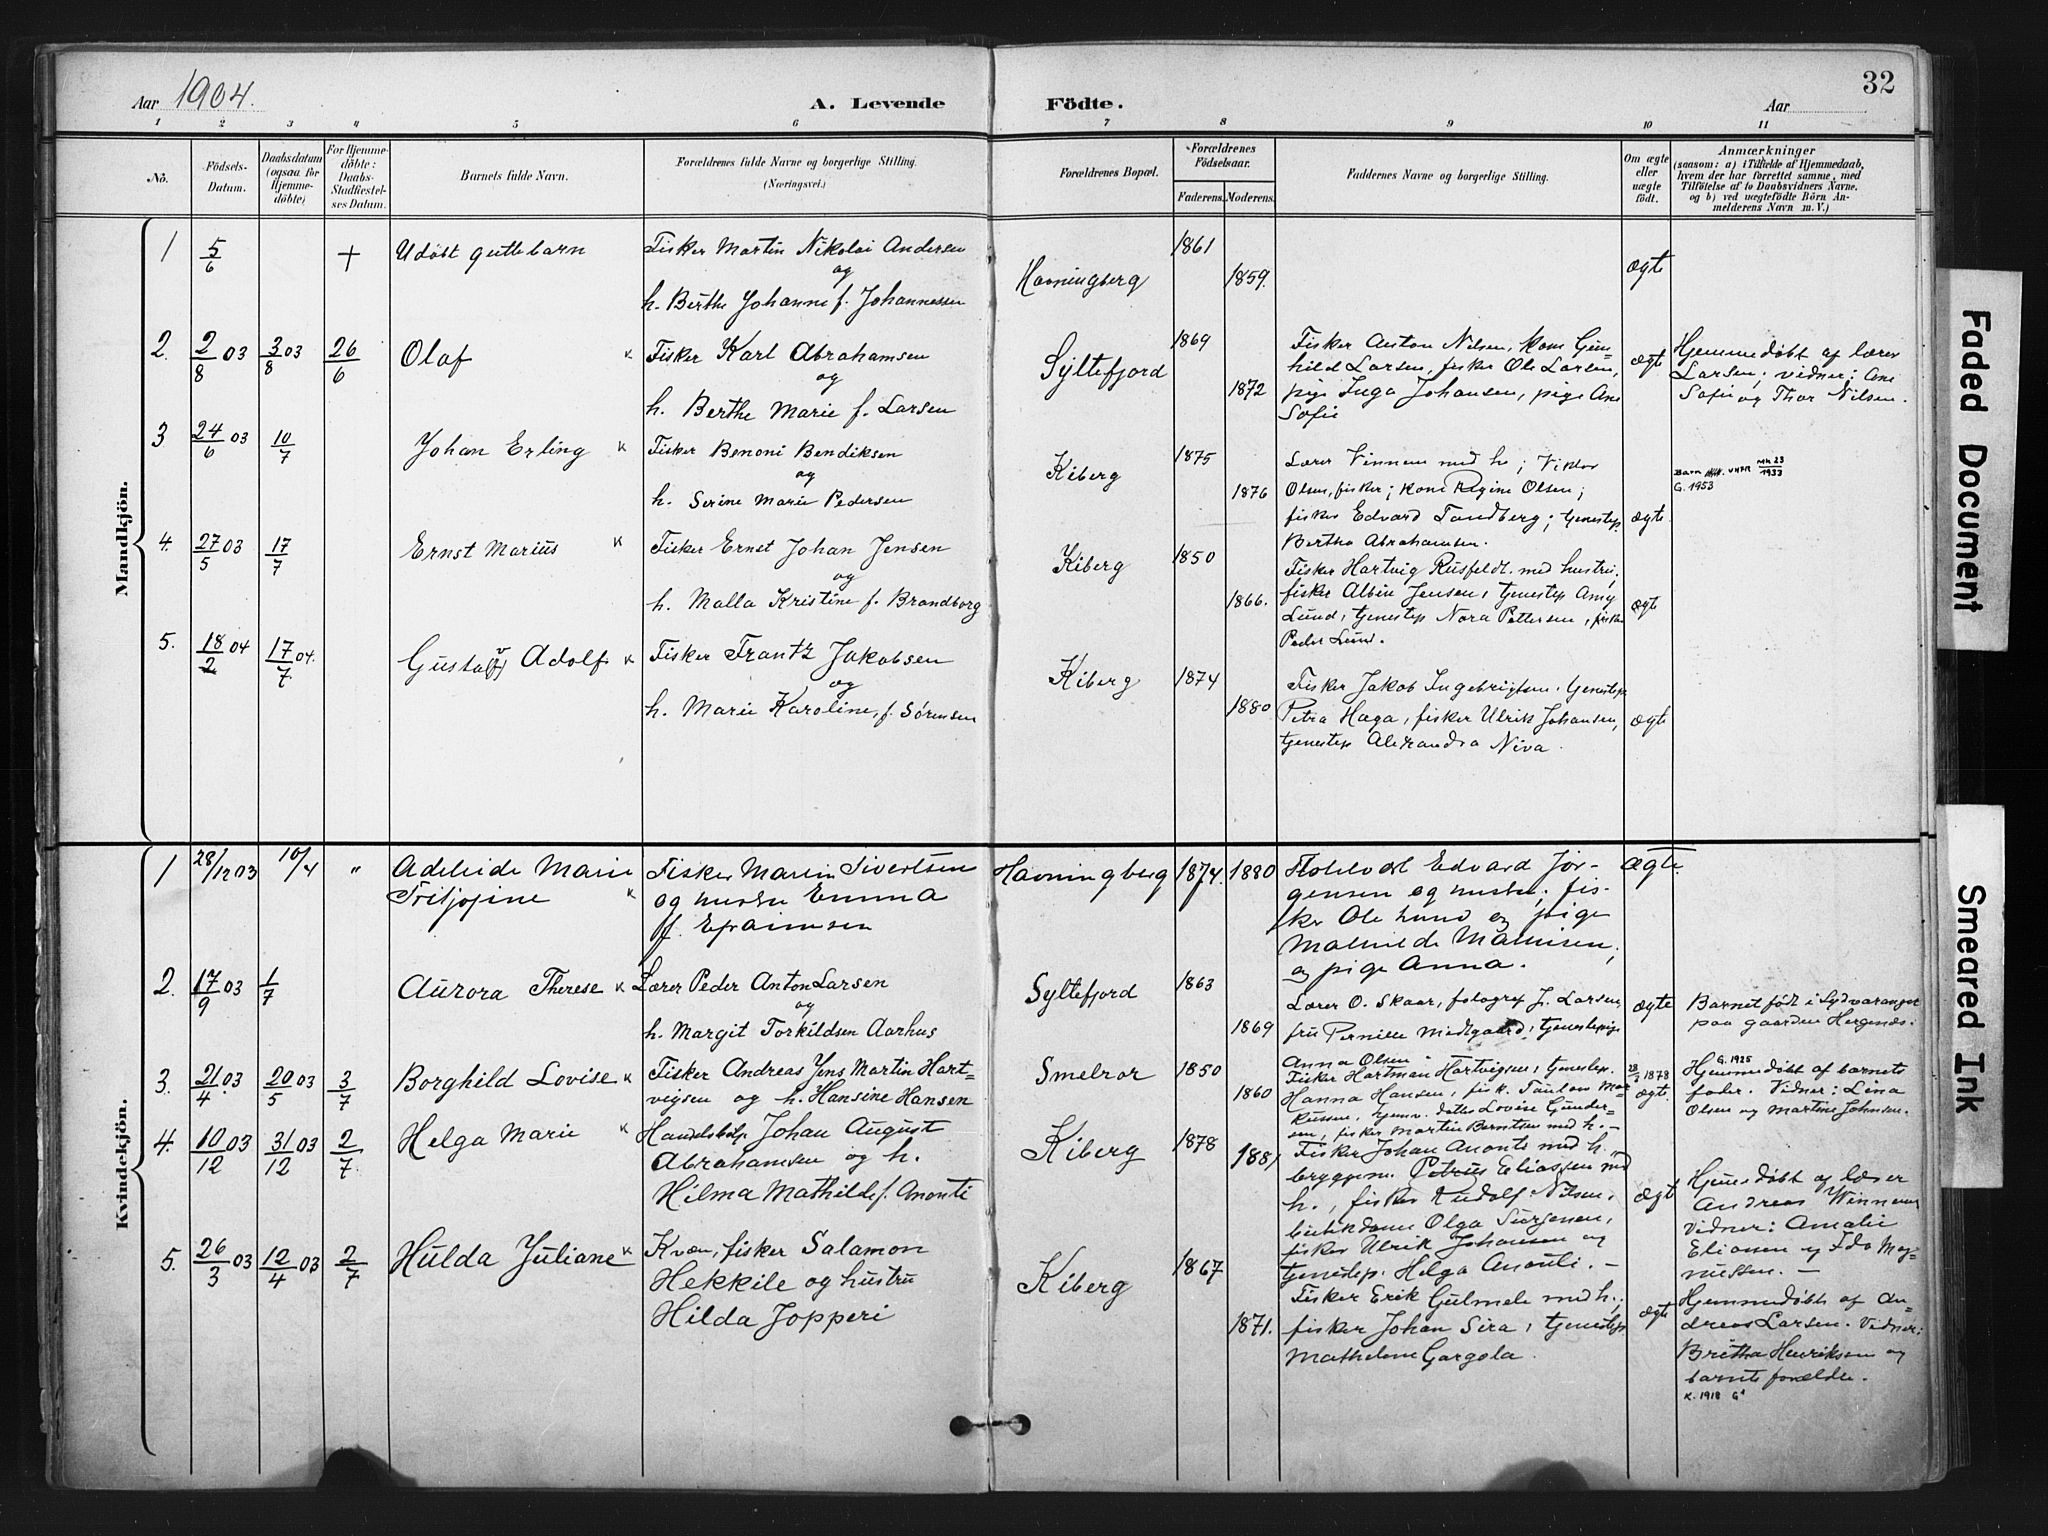 Aar 1904.
A. Levende
Födte.
Aar
32
1 2 3 4 5 6 7 8 9 10 11
No.
Födsels-
Datum.
Daabsdatum
(ogsaa for
Hjemme-
döbte)
For Hjemme-
döbte:
Daabs-
Stadfæstel-
ses Datum.
Barnets fulde Navn.
Forældrenes fulde Navne og borgerlige Stilling.
(Næringsvei.)
Forældrenes Bopæl.
Forældrenes
Födselsaar.
Faderens. Moderens.
Faddernes Navne og borgerlige Stilling.
Om ægte
eller
uægte
født.
Anmærkninger
(saasom: a) i Tilfælde af Hjemmedaab,
hvem der har forrettet samme, med
Tilföielse af to Daabsvidners Navne.
og b) ved uægtefödte Börn An-
melderens Navn m. V.)
Mandkjön.
1 5/6 + Udöbt guttebarn
Fisker Martin Nikolai Andersen
og
h. Berthe Johanne f. Johannessen
Havningberg 1861 1859. ægte
2. 2/8 03 3/8 03 26/6 Olaf
Fisker Karl Abrahamsen
og
h. Berthe Marie f. Larsen
Syltefjord 1869 1872
Fisker Anton Nilsen, kone Gun=
hild Larsen, fisker Ole Larsen,
pige Inga Johansen, pige Ane
Sofie
ægte
Hjemmedöbt af lærer
Larsen; vidner: Ane
Sofie og Thor Nilsen.
3 24/6 03 10/7 Johan Erling
Fisker Benoni Bendiksen
og
h. Serine Marie Pedersen
Kiberg 1875 1876
Lærer Vinnem med h.; Viktor
Olsen, fisker; kone Regine Olsen;
fisker Edvard Tandberg; tjenestep.
Bertha Abrahamsen.
ægte
Barn
G. 1953
4. 27/5 03 17/7 Ernst Marius
Fisker Ernst Johan Jensen
og
h. Malla Kristine f. Brandborg
Kiberg 1850 1866.
Fisker Hartvig Rusfeldt med hustru,
fisker Albin Jensen, tjenestep Amy
Lund, tjenestep Nora Pettersen, fisker
Peder Lund.
ægte
5. 18/2 04 17/7 04. Gustaf Adolf
Fisker Frantz Jakobsen
og
h. Marie Karoline, f. Sörensen
Kiberg 1874 1880
Fisker Jakob Ingebrigtsen, tjenestep.
Petra Haga, fisker Ulrik Johansen,
tjenestep Alexandra Niva.
ægte
Kvindekjön.
1 28/12 03 10/4 " Adeleide Marie
Fisker Martin Sivertsen
og hustru Emma
f. Efraimsen
Havningberg 1874. 1880
Edvard Jör-
gensen og hustru; fis-
ker Ole Lund og pige
Malmisen,
og pige Anna.
ægte.
2. 17/9 03 1/7 Aurora Therese
Lærer Peder Anton Larsen
og
h. Margit Torkildsen Aarhus
Syltefjord 1863 1869
Lærer O. Skaar, fotograf J. Larsen,
fru Pernille Medlgaard, tjenestepige
Anna Olsen
ægte
Barnet födt i Sydvaranger
paa gaarden Hergenæs.
3. 21/4 03 20/5 03 3/7 Borghild Lovise
Fisker Andreas Jens Martin Hart=
vigsen og h. Hansine Hansen
Smelror 1850 1860
Fisker Hartman Hartvigsen, tjenestep.
Hanna Hansen, fisk. Paulow Mar=
kussen, hjemv. datter Lovise Gunder=
sen, fisker Martin Berntsen med h. —
1878
ægte.
G. 1925
Hjemmedöbt af barnets
fader. Vidner: Lina
Olsen og Martine Johnsen.
4. 10/12 03 31/12 03 2/7 Helga Marie
Handelsbetj. Johan August
Abrahamsen og h.
Hilma Mathilde f. Anonti
Kiberg 1878 1881
Fisker Johan Anonti med h.,
bryggem. Petrus Eliassen med
h., fisker Rudolf Nilsen,
butikdame Olga
fisker Ulrik Johansen og
tjenestep. Helga Anonti. —
ægte
Hjemedöbt af lærer
Andreas Winnem
Vidner: Amalie
Eliassen og Ida Mag=
nussen. —
5. 26/3 03 12/4 03 2/7 Hulda Juliane
Kvæn, fisker Salamon
Hekkile og hustru
Hilda Jopperi
Kiberg 1867 1871.
Fisker Erik Gulmele med h.;
fisker Johan Sira, tjenestep
Mathelene Gargola.
ægte
Hjemmedöbt af An=
dreas Larsen. Vidner:
Britha Henriksen og
barnets forældre.
K. 1918 G
Faded Document
Smeared Ink